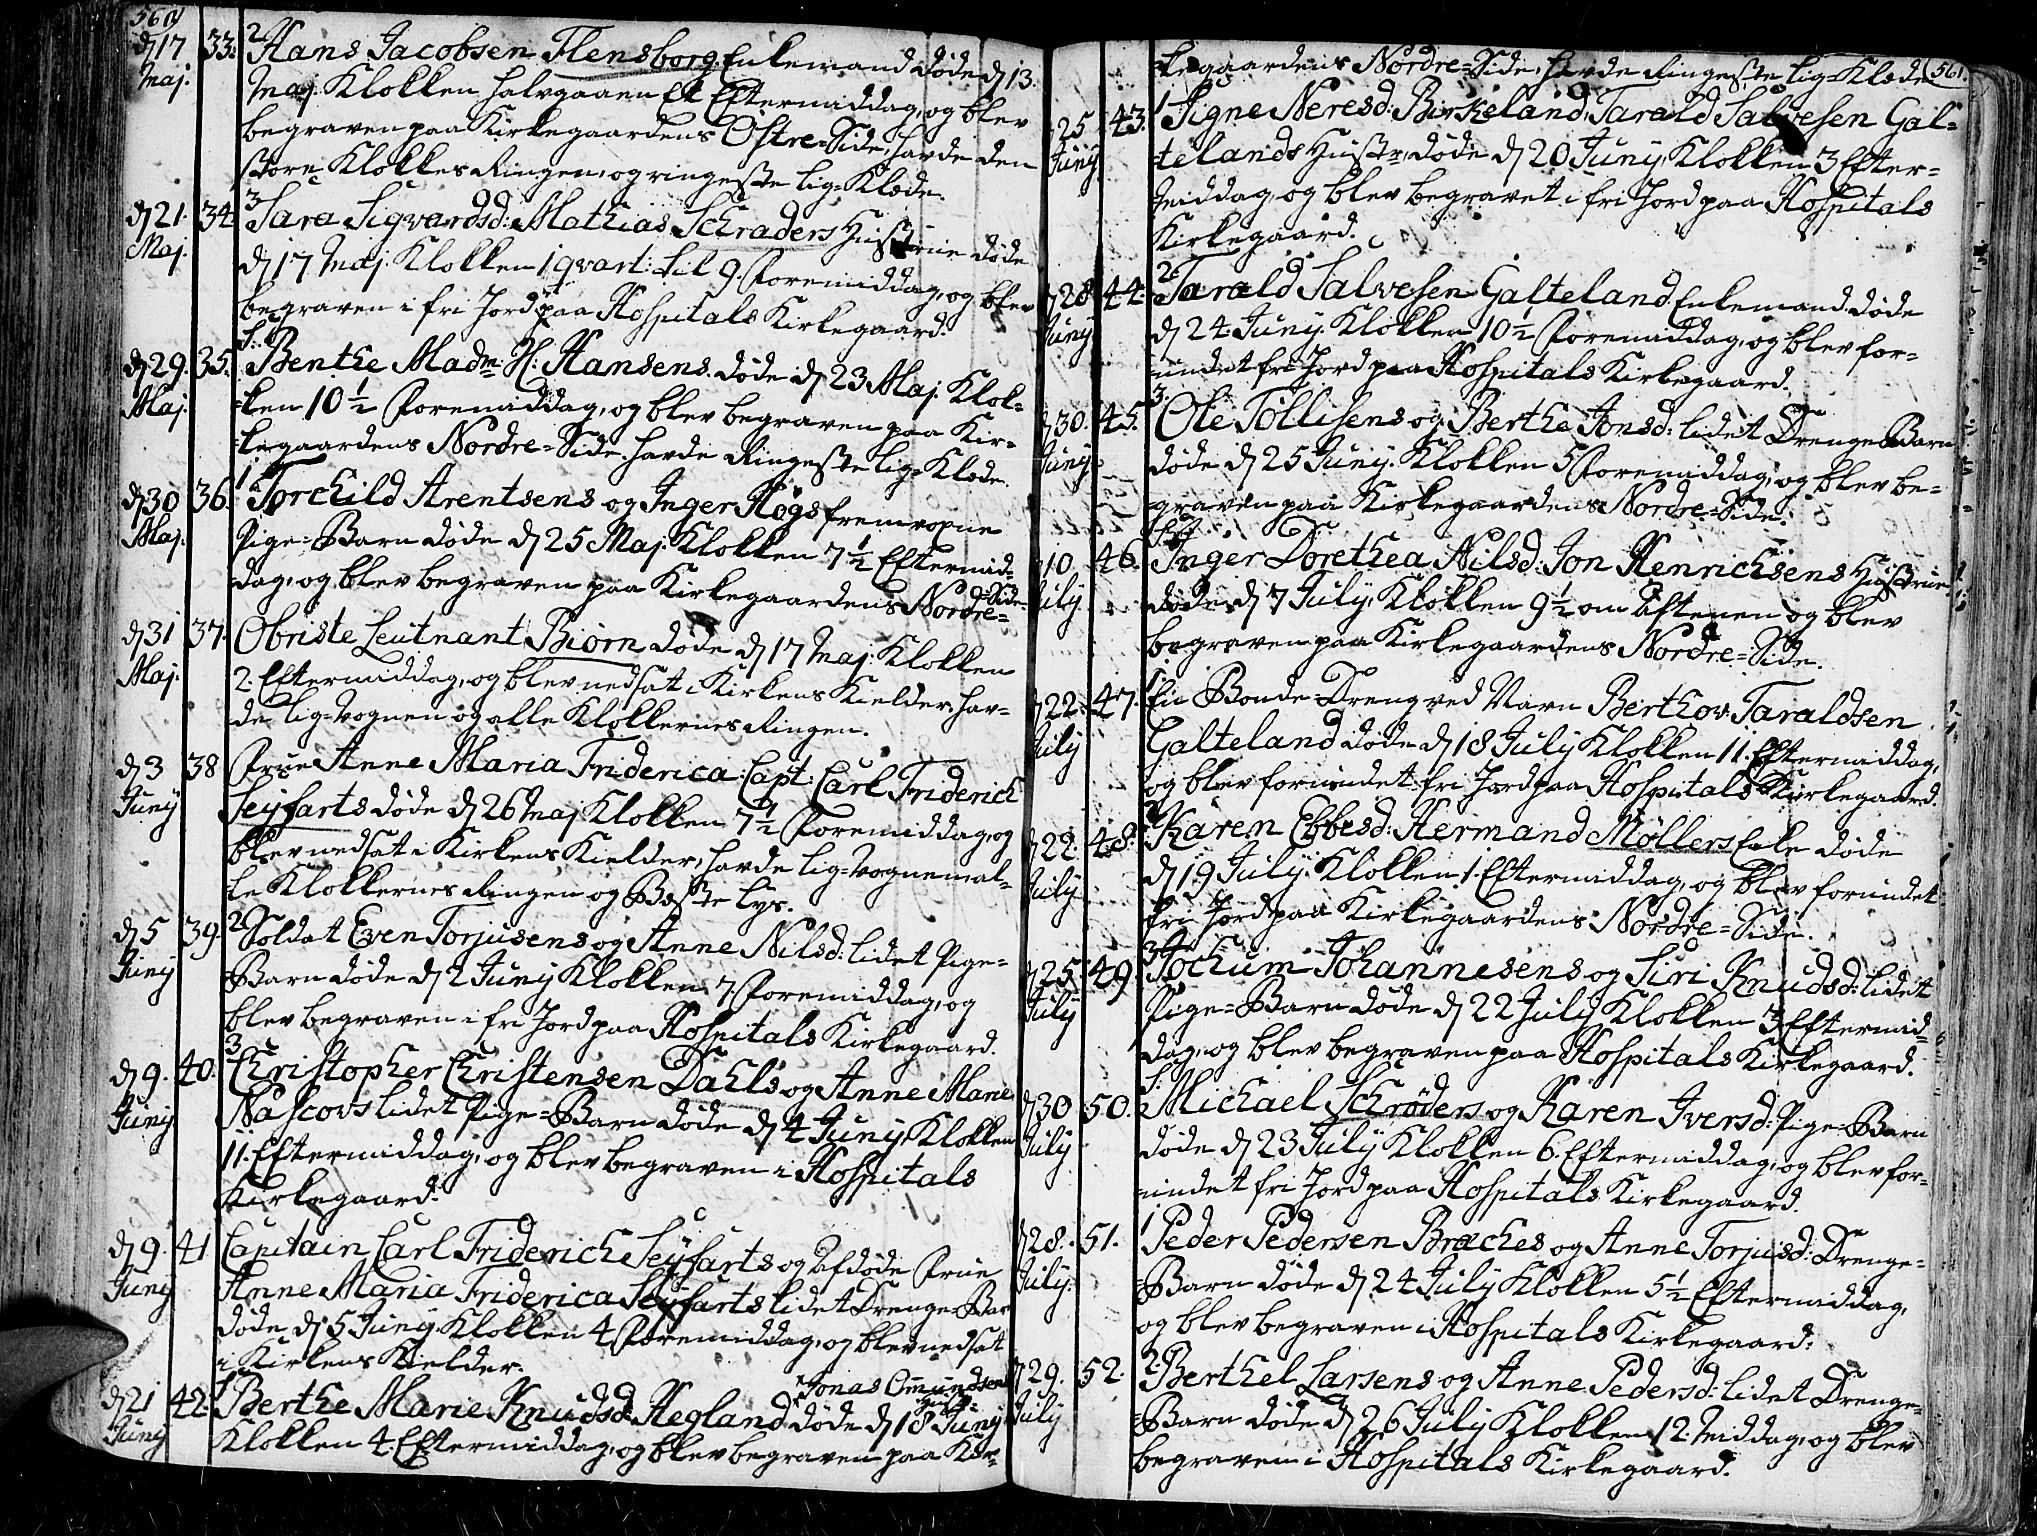 560
d 17 Maj. 33. 2 Hans Jacobsen Flensborg. Enkemand døde d 13.
Maj. Klokken halvgaaen Et Eftermiddag, og blev
begraven paa Kirkegaardens Østre=Side, havde den
store Klokkes Ringen, og ringeste Lig=Klæde.
d 21. Maj. 34. 3 Sara Sigvardsd: Mathias Schraders Hustrue døde
d 17 Maj. Klokken 1 qvart: til 9. Formiddag, og blev
begraven i fri Jord paa Hospitals Kirkegaard.
d 29. Maj. 35. S: Benthe Madm: H: Hansens. døde d 23 Maj. Klok=
=ken 10½ Foremiddag, og blev begraven paa Kir=
=kegaardens Nordre=Side. havde Ringeste Lig=Klæde.
d 30 Maj. 36. 1 Torchild Arentsens og Inger Høgs fremvoxne
Pige=Barn døde d 25 Maj. Klokken 7½ Eftermid=
dag, og blev begraven paa Kirkegaardens Nordre=Side
d 31 Maj. 37. Obriste Leutnant Biørn døde d 17 Maj. Klokken
2. Eftermiddag, og blev nedsat i Kirkens Kielder, hav=
de Lig=Vognen og alle Klokkernes Ringen.
d 3 Juny 38 Frue Anne Maria Friderica Capt: Carl Friderich
Seyfarts døde d 26 Maj Klokken 7½ Foremiddag, og
blev nedsat i Kirkens Kielder, havde Lig=Vognen, al=
le Klokkernes Ringen og Beste Lys.
d 5 Juny 39. 2 Soldat Even Torjusens og Anne Nilsd: lidet Pige=
=Barn døde d 2 Juny Klokken 7 Foremiddag, og
blev begraven i fri Jord paa Hospitals Kirkegaard.
d 9. Juny 40. 3 Christopher Christensen Dahls og Anne Marie
Nascovs lidet Pige=Barn døde d 4 Juny, Klokken
11. Eftermiddag, og blev begraven i Hospitals
Kirkegaard.
d 9. Juny 41 Capitain Carl Friderich Seyfarts og Afdøde Frue
Anne Maria Friderica Seyfarts lidet Drenge=Bar
døde d 5 Juny Klokken 4 Foremiddag, og blev nedsat
i Kirkens Kielder.
Jonas Omundsens
d 21 Juny 42. 1 Berthe Marie Knudsd: Hegland døde d 18 Juny
Klokken 4. Eftermiddag, og blev begraven paa Kir=
561.
kegaardens Nordre=Side, havde Ringeste Lig=Klæde
25 Juny 43. 1 Signe Neresd: Birkeland, Tarald Salvesen Gal=
=telands Hustr: døde d 20 Juny, Klokken 3 Efter=
middag, og blev begravet i fri Jord paa Hospitals
Kirkegaard.
28 Juny 44. 2. Tarald Salvesen Galteland. Enkemand. døde
d 24. Juny. Klokken 10½ Foremiddag, og blev for=
undet fri Jord paa Hospitals Kirkegaard.
30. Juny. 45. 3. Ole Tollisens og Berthe Jonsd: lidet Drenge Barn
døde d 25 Juny. Klokken 5 Foremiddag, og blev be=
graven paa Kirkegaardens Nordre=Side.
10 July 46. Inger Dorethea Nilsd: Jon Henrichsens Hustrue
døde d 7 July, Klokken 9½ om Aftenen og blev
begraven paa Kirkegaardens Nordre=Side.
22. July 47. 1 En Bonde=Dreng ved Navn Berthov Taraldsen
Galteland døde d 18 July Klokken 11. Eftermiddag,
og blev forundet fri Jord paa Hospitals Kirkegaard.
22. July 48. 2 Karen Ebbesd: Hermand Møllers Enke døde
d 19 July. Klokken 1. Eftermiddag, og blev forundet
fri Jord paa Kirkegaardens Nordre=Side.
25 July 49. 3 Jochum Johannesens og Siri Knudsd: lidet
Pige=Barn døde d 22 July Klokken 3 Eftermid=
dag, og blev begraven paa Hospitals Kirkegaard.
30 July 50. S: Michael Schrøders og Karen Iversd: Pige=Barn
døde d 23 July Klokken 6. Eftermiddag, og blev for=
=undet fri Jord paa Hospitals Kirkegaard.
28. July. 51. 1 Peder Pedersen Bræches og Anne Torjusd: Drenge=
=Barn døde d 24 July Klokken 5½ Eftermiddag,
og blev begraven i Hospitals Kirkegaard:
29. July 52. 2. Berthel Larsens og Anne Pedersd: lidet Drenge=
=Barn døde d 26 July Klokken 12. Middag, og blev
begraven i Hospitals Kirkegaard.